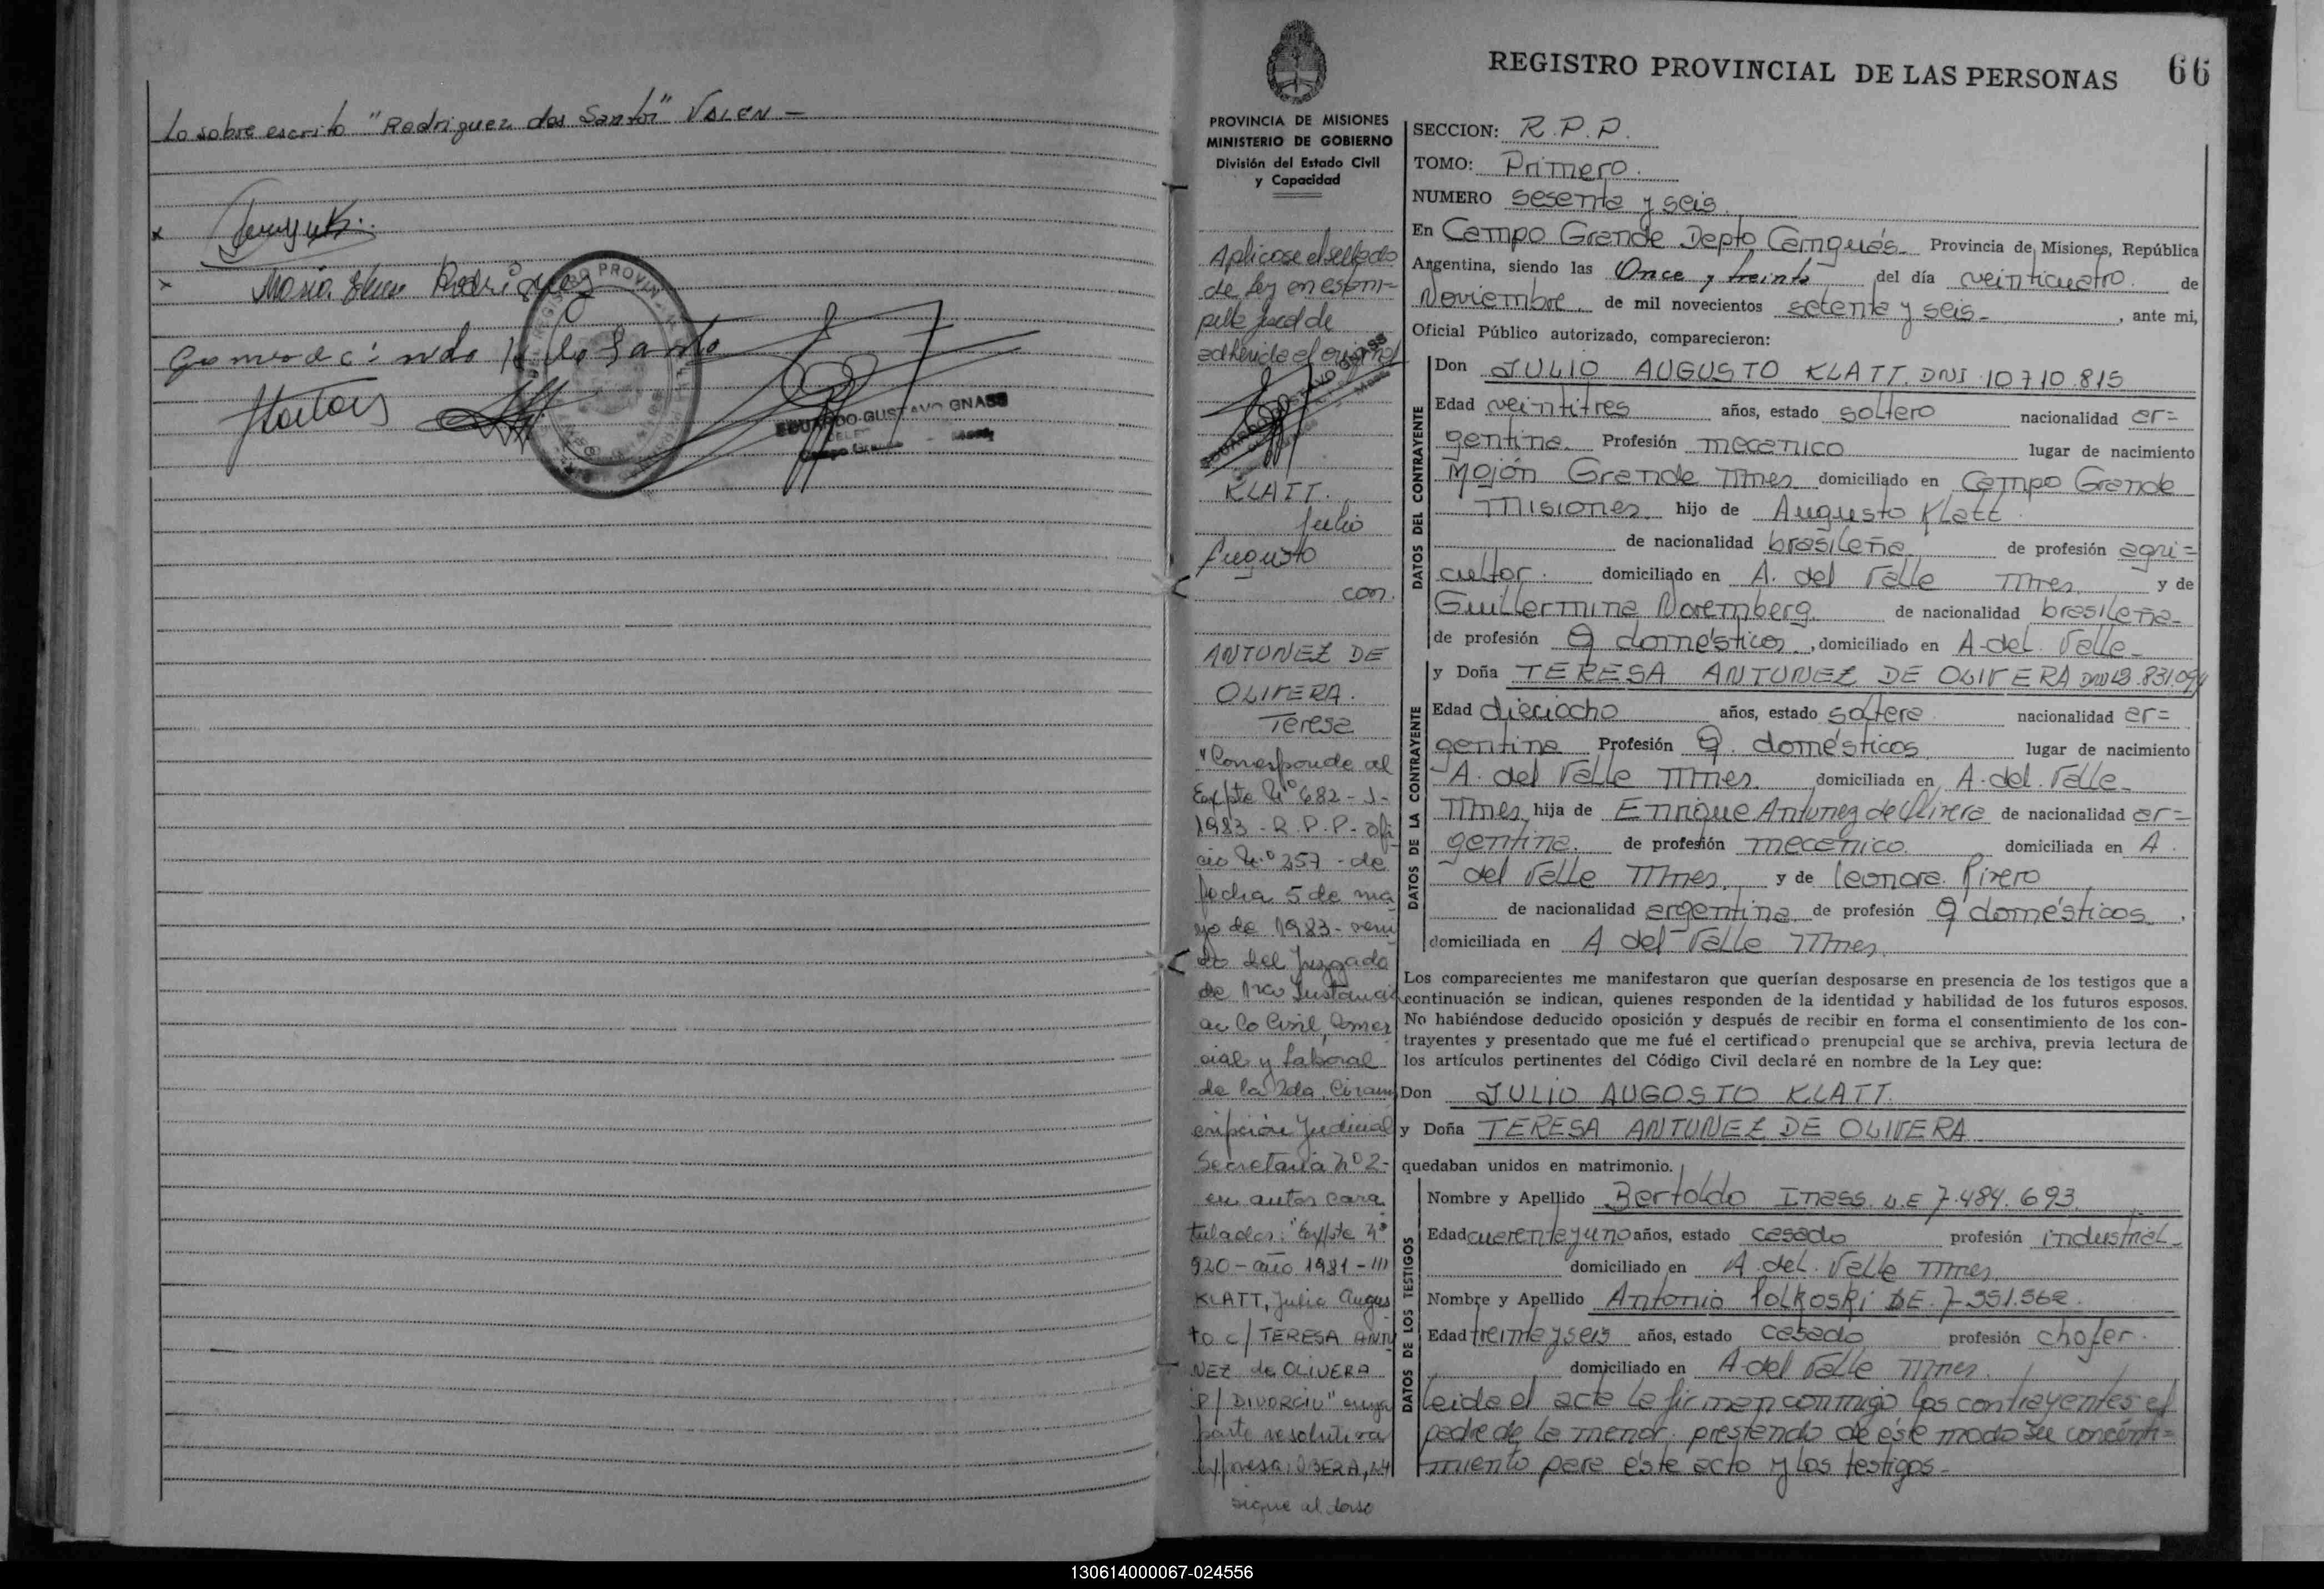 Lo sobre escrito "Rodriguez dos Santos" VALEN -
Maria Elena Rodriguez
EDUARDO GUSTAVO GNASS
REGISTRO PROVINCIAL DE LAS PERSONAS 66
PROVINCIA DE MISIONES
MINISTERIO DE GOBIERNO
División del Estado Civil
y Capacidad
Aplicose el sellado
de ley en estam-
pilla fiscal de
adherida al original
EDUARDO GUSTAVO GNASS
KLATT.
Julio
Augusto
con.
ANTUNEZ DE
OLIVERA.
Teresa
"Corresponde al
Expte Nº 682 - J -
1983 - R.P.P. - ofi
cio N.º 257 - de
fecha 5 de ma
yo de 1983 - remi
do del Juzgado
de 1ra Instancia
en lo Civil, Comer
cial y Laboral
de la 2da. Circuns
cripción Judicial
Secretaria Nº 2 -
en autos cara
tulados: "Expte Nº
920 - año 1981 - III
KLATT, Julio Augus
to c/ TERESA ANTU
NEZ de OLIVERA
P/ DIVORCIO" cuya
parte resolutiva
expresa: OBERA, 24
sigue al dorso
SECCION: R.P.P.
TOMO: Primero.
NUMERO sesenta y seis.
En Campo Grande Depto Cainguás. Provincia de Misiones, República
Argentina, siendo las Once y treinta del día veinticuatro. de
Noviembre. de mil novecientos setenta y seis- , ante mi,
Oficial Público autorizado, comparecieron:
DATOS DEL CONTRAYENTE
Don JULIO AUGUSTO KLATT. DNI 10710.815
Edad veintitres años, estado soltero nacionalidad ar=
gentina. Profesión mecanico lugar de nacimiento
Mojón Grande Mnes. domiciliado en Campo Grande
Misiones. hijo de Augusto Klatt.
de nacionalidad brasileña. de profesión agri=
cultor. domiciliado en A. del Valle Mnes. y de
Guillermina Noremberg. de nacionalidad brasileña-
de profesión Q domésticos. , domiciliado en A-del. Valle-
DATOS DE LA CONTRAYENTE
y Doña TERESA ANTUNEZ DE OLIVERA DNI 12.831.094
Edad dieciocho años, estado soltera nacionalidad ar=
gentina Profesión Q. domésticos lugar de nacimiento
A. del Valle Mnes. domiciliada en A-del. Valle-
Mnes. hija de Enrique Antunez de Olivera de nacionalidad ar=
gentina. de profesión mecanico. domiciliada en A.
del Valle Mnes. y de Leonora. Rivero
de nacionalidad argentina. de profesión Q domésticos ,
domiciliada en A del Valle Mnes.
Los comparecientes me manifestaron que querían desposarse en presencia de los testigos que a
continuación se indican, quienes responden de la identidad y habilidad de los futuros esposos.
No habiéndose deducido oposición y después de recibir en forma el consentimiento de los con-
trayentes y presentado que me fué el certificado prenupcial que se archiva, previa lectura de
los artículos pertinentes del Código Civil declaré en nombre de la Ley que:
Don JULIO AUGOSTO KLATT.
y Doña TERESA ANTUNEZ DE OLIVERA
quedaban unidos en matrimonio.
DATOS DE LOS TESTIGOS
Nombre y Apellido Bertoldo Inass. L.E 7.484.693.
Edad cuarenta y uno años, estado casado profesión industrial-
domiciliado en A. del. Valle Mnes.
Nombre y Apellido Antonio Polkoski DE. 7-551.562.
Edad treinta y seis años, estado casado profesión chofer.
domiciliado en A-del Valle Mnes.
leida el acta la firman conmigo los contrayentes el
padre de la menor. prestando de éste modo su concenti=
miento para éste acto y los testigos-
130614000067-024556